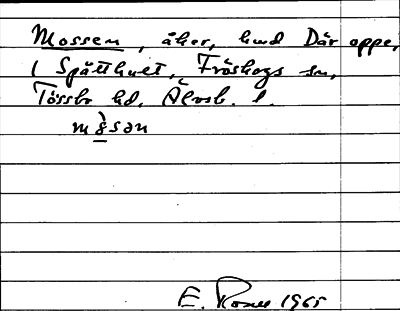 Mossen, åker, hmd Där oppe,
1 Spåtthult, Fröskogs sn,
Tössbo hd, Älvsb. l.
E. Rosen 1965